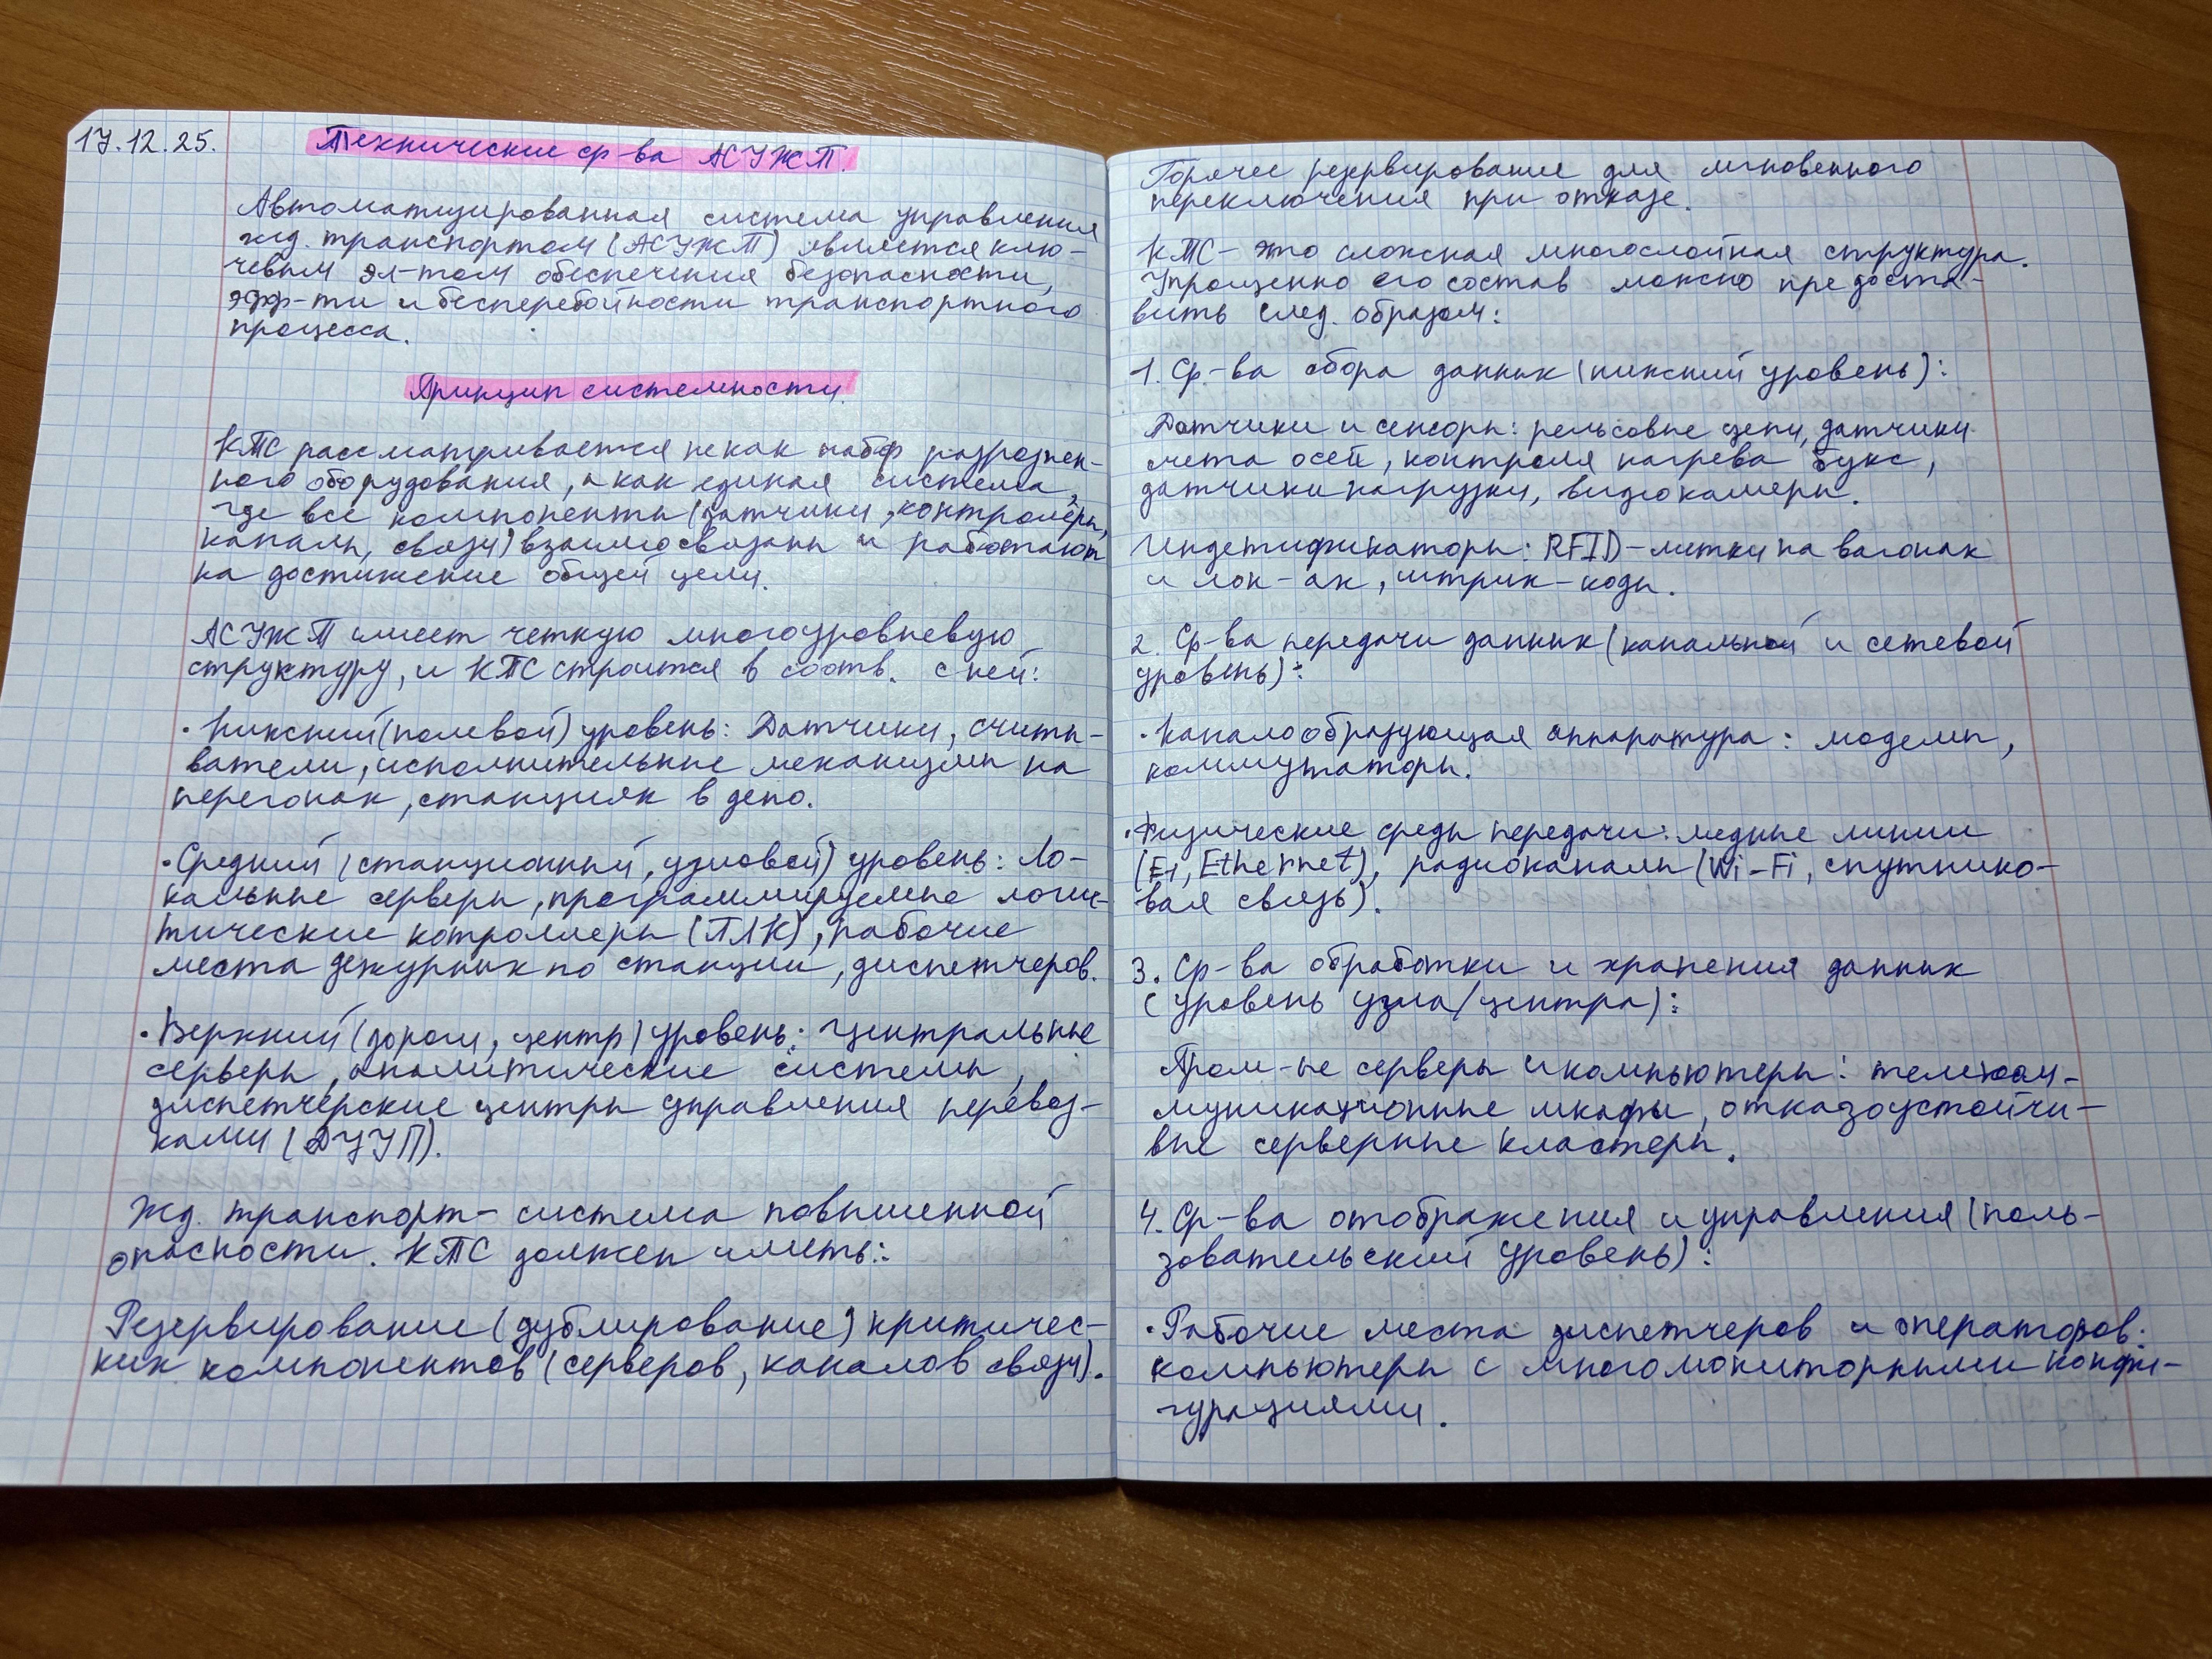 17.12.25.
Технические ср-ва АСУЖТ.
Автоматизированная система управления
жд. транспортом (АСУЖТ) является клю-
чевым эл-том обеспечения безопасности,
эфф-ти и бесперебойности транспортного
процесса.
Принцип системности.
КТС рассматривается не как набор разрознен-
ного оборудования, а как единая система,
где все компоненты (датчики, контролёры,
каналы, связи) взаимосвязаны и работают
на достижение общей цели.
АСУЖТ имеет четкую многоуровневую
структуру, и КТС строится в соотв. с ней:
· Нижний (полевой) уровень: Датчики, считы-
ватели, исполнительные механизмы на
перегонах, станциях в депо.
· Средний (станционный, узловой) уровень: Ло-
кальные серверы, программируемые логис-
тические котроллеры (ПЛК), рабочие
места дежурных по станции, диспетчеров.
· Верхний (дорож, центр) уровень: Центральные
серверы, аналитические системы,
диспетчерские центры управления перевоз-
ками (ДЦУП).
Жд. транспорт - система повышенной
опасности. КТС должен иметь:
Резервирование (дублирование) критичес-
ких компонентов (серверов, каналов связи).
Горячее резервирование для мгновенного
переключения при отказе.
КТС - это сложная многослойная структура.
Упрощенно его состав можно предоста-
вить след. образом:
1. Ср.-ва сбора данных (нижний уровень):
Датчики и сенсоры: рельсовые цепи, датчики
счета осей, контроля нагрева букс,
датчики нагрузки, видиокамеры.
Индетификаторы: RFID-метки на вагонах
и лок-ах, штрих-коды.
2. Ср-ва передачи данных (канальной и сетевой
уровень):
· Каналообразующая аппаратура: модемы,
коммутаторы.
· Физические среды передачи: медные линии
(E1, Ethernet), радиоканалы (Wi-Fi, спутнико-
вая связь).
3. Ср-ва обработки и хранения данных
(уровень узла/центра):
Пром-ые серверы и компьютеры: телеком-
муникационные шкафы, отказоустойчи-
вые серверные кластеры.
4. Ср-ва отображения и управления (поль-
зовательский уровень):
· Рабочие места диспетчеров и операторов:
компьютеры с многомониторными конфи-
гурациями.